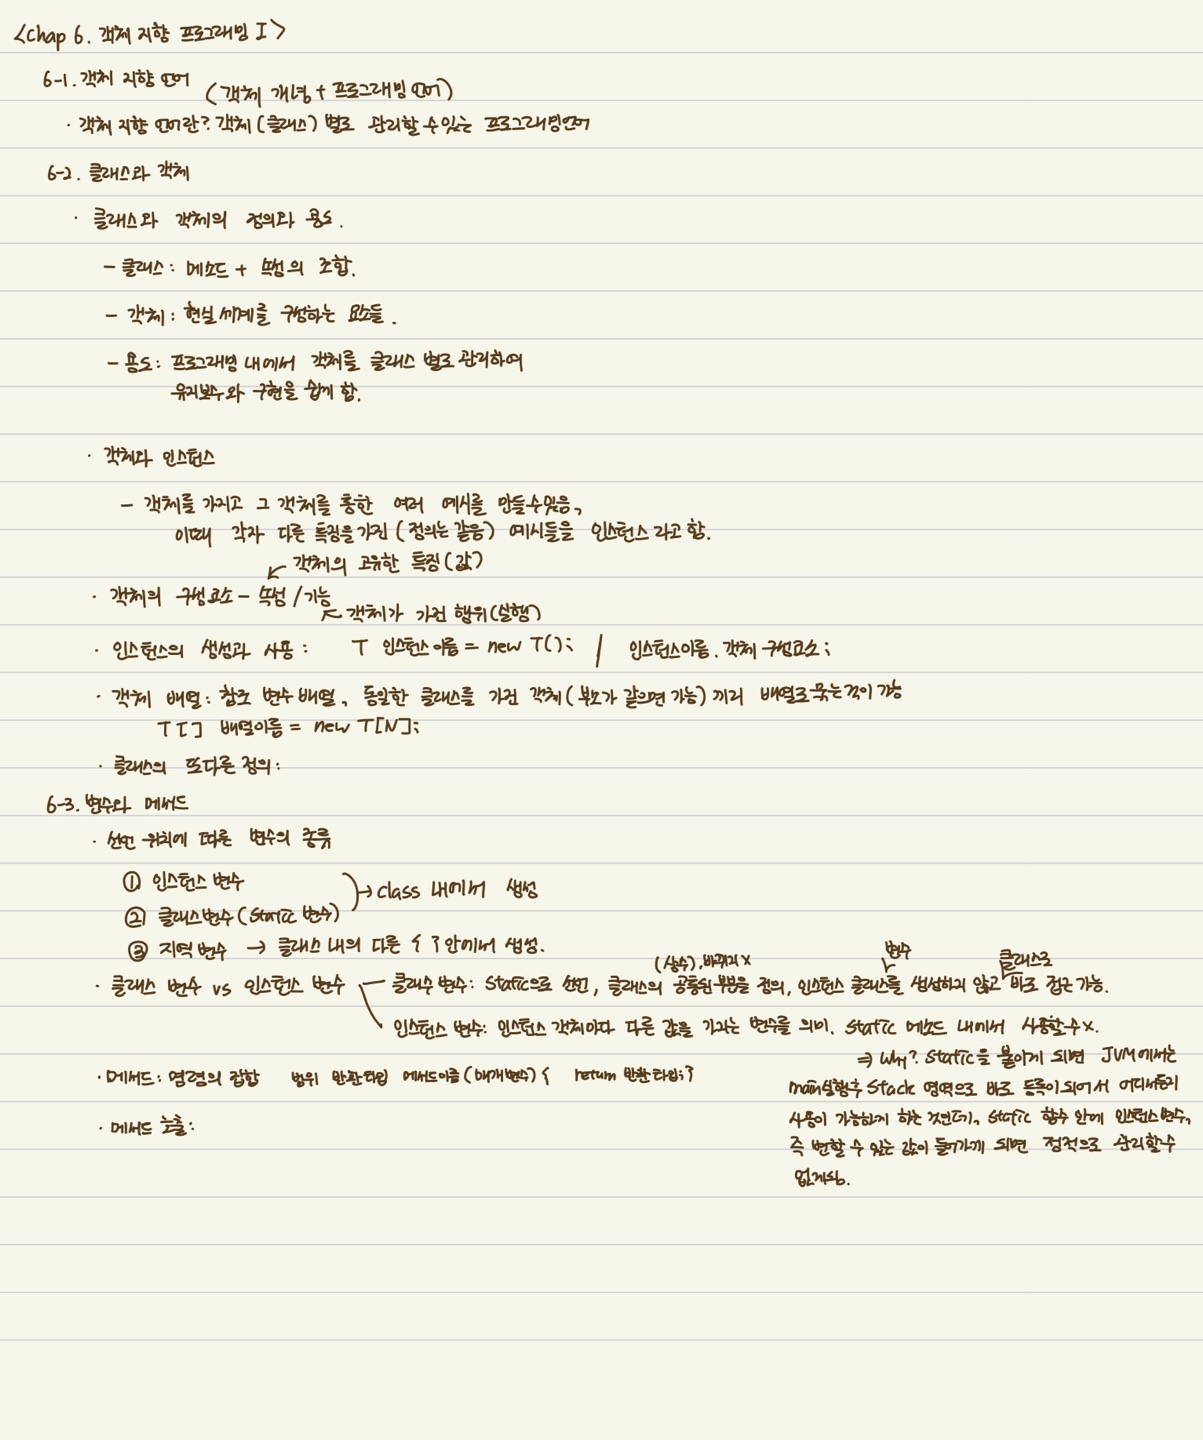 <Chap 6. 객체 지향 프로그래밍 I>
6-1. 객체 지향 언어 (객체 개념 + 프로그래밍 언어)
· 객체 지향 언어란? 객체 (클래스) 별로 관리할 수 있는 프로그래밍언어
6-2. 클래스와 객체
· 클래스와 객체의 정의와 용도.
- 클래스 : 메소드 + 속성의 조합.
- 객체 : 현실 세계를 구성하는 요소들.
- 용도 : 프로그래밍 내에서 객체를 클래스 별로 관리하여
유지보수와 구현을 쉽게 함.
· 객체와 인스턴스
- 객체를 가지고 그 객체를 통한 여러 예시를 만들 수 있음,
이때 각자 다른 특징을 가진 (정의는 같음) 예시들을 인스턴스 라고 함.
↙ 객체의 고유한 특징 (값)
· 객체의 구성요소 - 속성 / 기능
↖ 객체가 가진 행위(실행)
· 인스턴스의 생성과 사용 : T 인스턴스이름 = new T(); / 인스턴스이름.객체 구성요소;
· 객체 배열 : 참조 변수 배열, 동일한 클래스를 가진 객체 (부모가 같으면 가능) 끼리 배열로 묶는 것이 가능
T[] 배열이름 = new T[N];
· 클래스의 또다른 정의 :
6-3. 변수와 메서드
· 선언 위치에 따른 변수의 종류
① 인스턴스 변수
② 클래스변수 (static 변수) → class 내에서 생성
③ 지역 변수 → 클래스 내의 다른 { } 안에서 생성.
(상수), 바뀌지 x 변수 클래스로
· 클래스 변수 vs 인스턴스 변수 - 클래수 변수 : static으로 선언, 클래스의 공통된 부분을 정의, 인스턴스 클래스를 생성하지 않고 바로 접근 가능.
인스턴스 변수 : 인스턴스 객체마다 다른 값을 가지는 변수를 의미. static 메소드 내에서 사용할 수 x.
⇒ Why? static을 붙이게 되면 JVM에서는
· 메서드 : 명령의 집합 범위 반환타입 메서드이름 (매개변수) { return 반환타입; }
main실행후 Stack 영역으로 바로 등록이 되어서 어디서든지
사용이 가능하게 하는 것인데, static 함수 안에 인스턴스변수,
· 메서드 호출 :
즉 변할 수 있는 값이 들어가게 되면 정적으로 관리할 수
없게됨.